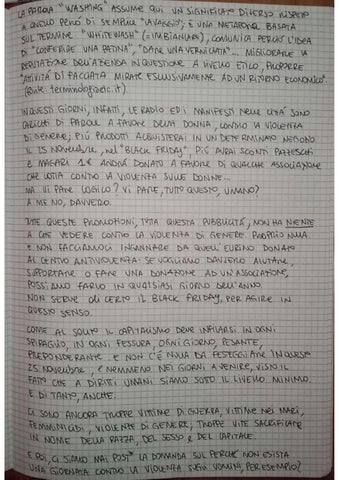 LA PAROLA "WASHING" ASSUME QUI UN SIGNIFICATO DIVERSO RISPETTO
A QUELLO PENSO DI SEMPLICE "LAVAGGIO"; È UNA METAFORA BASATA
SUL TERMINE "WHITEWASH" (= IMBIANCARE), COMUNICA PERCIÒ L'IDEA
DI "CONFERIRE UNA PATINA", "DARE UNA VERNICIATA"... MIGLIORARE LA
REPUTAZIONE DELL'AZIENDA IN QUESTIONE A LIVELLO ETICO, PROPORRE
"ATTIVITÀ DI FACCIATA MIRATE ESCLUSIVAMENTE AD UN RITORNO ECONOMICO"
(Fonte: terminologiaetc.it)
IN QUESTI GIORNI, INFATTI, LE RADIO ED I MANIFESTI NELLE CITTÀ SONO
CARICHI DI PAROLE A FAVORE DELLA DONNA, CONTRO LA VIOLENZA
DI GENERE, PIÙ PRODOTTI ACQUISTERAI IN UN DETERMINATO NEGOZIO
IL 25 NOVEMBRE, NEL "BLACK FRIDAY", PIÙ AVRAI SCONTI PAZZESCHI
E MAGARI 1€ ANDRÀ DONATO A FAVORE DI QUALCHE ASSOCIAZIONE
CHE LOTTA CONTRO LA VIOLENZA SULLE DONNE...
MA VI PARE LOGICO? VI PARE, TUTTO QUESTO, UMANO?
A ME NO, DAVVERO.
TUTTE QUESTE PROMOZIONI, TUTTA QUESTA PUBBLICITÀ, NON HA NIENTE
A CHE VEDERE CONTRO LA VIOLENZA DI GENERE. PROPRIO NULLA
E NON FACCIAMOCI INGANNARE DA QUELL'EURINO DONATO
AL CENTRO ANTIVIOLENZA: SE VOGLIAMO DAVVERO AIUTARE,
SUPPORTARE O FARE UNA DONAZIONE AD UN'ASSOCIAZIONE,
POSSIAMO FARLO IN QUALSIASI GIORNO DELL'ANNO.
NON SERVE DI CERTO IL BLACK FRIDAY, PER AGIRE IN
QUESTO SENSO.
COME AL SOLITO IL CAPITALISMO DEVE INFILARSI IN OGNI
SPIRAGLIO, IN OGNI FESSURA, OGNI GIORNO, PESANTE,
PREPONDERANTE. E NON C'È NULLA DA FESTEGGIARE IN QUESTO
25 NOVEMBRE, E NEMMENO NEI GIORNI A VENIRE, VISTO IL
FATTO CHE A DIRITTI UMANI SIAMO SOTTO IL LIVELLO MINIMO.
E DI TANTO, ANCHE.
CI SONO ANCORA TROPPE VITTIME DI GUERRA, VITTIME NEI MARI,
FEMMINICIDI, VIOLENTE DI GENERE, TROPPE VITE SACRIFICATE
IN NOME DELLA RAZZA, DEL SESSO E DEL CAPITALE.
E POI, CI SIAMO MAI POSTI LA DOMANDA SUL PERCHÉ NON ESISTA
UNA GIORNATA CONTRO LA VIOLENZA SUGLI UOMINI, PER ESEMPIO?